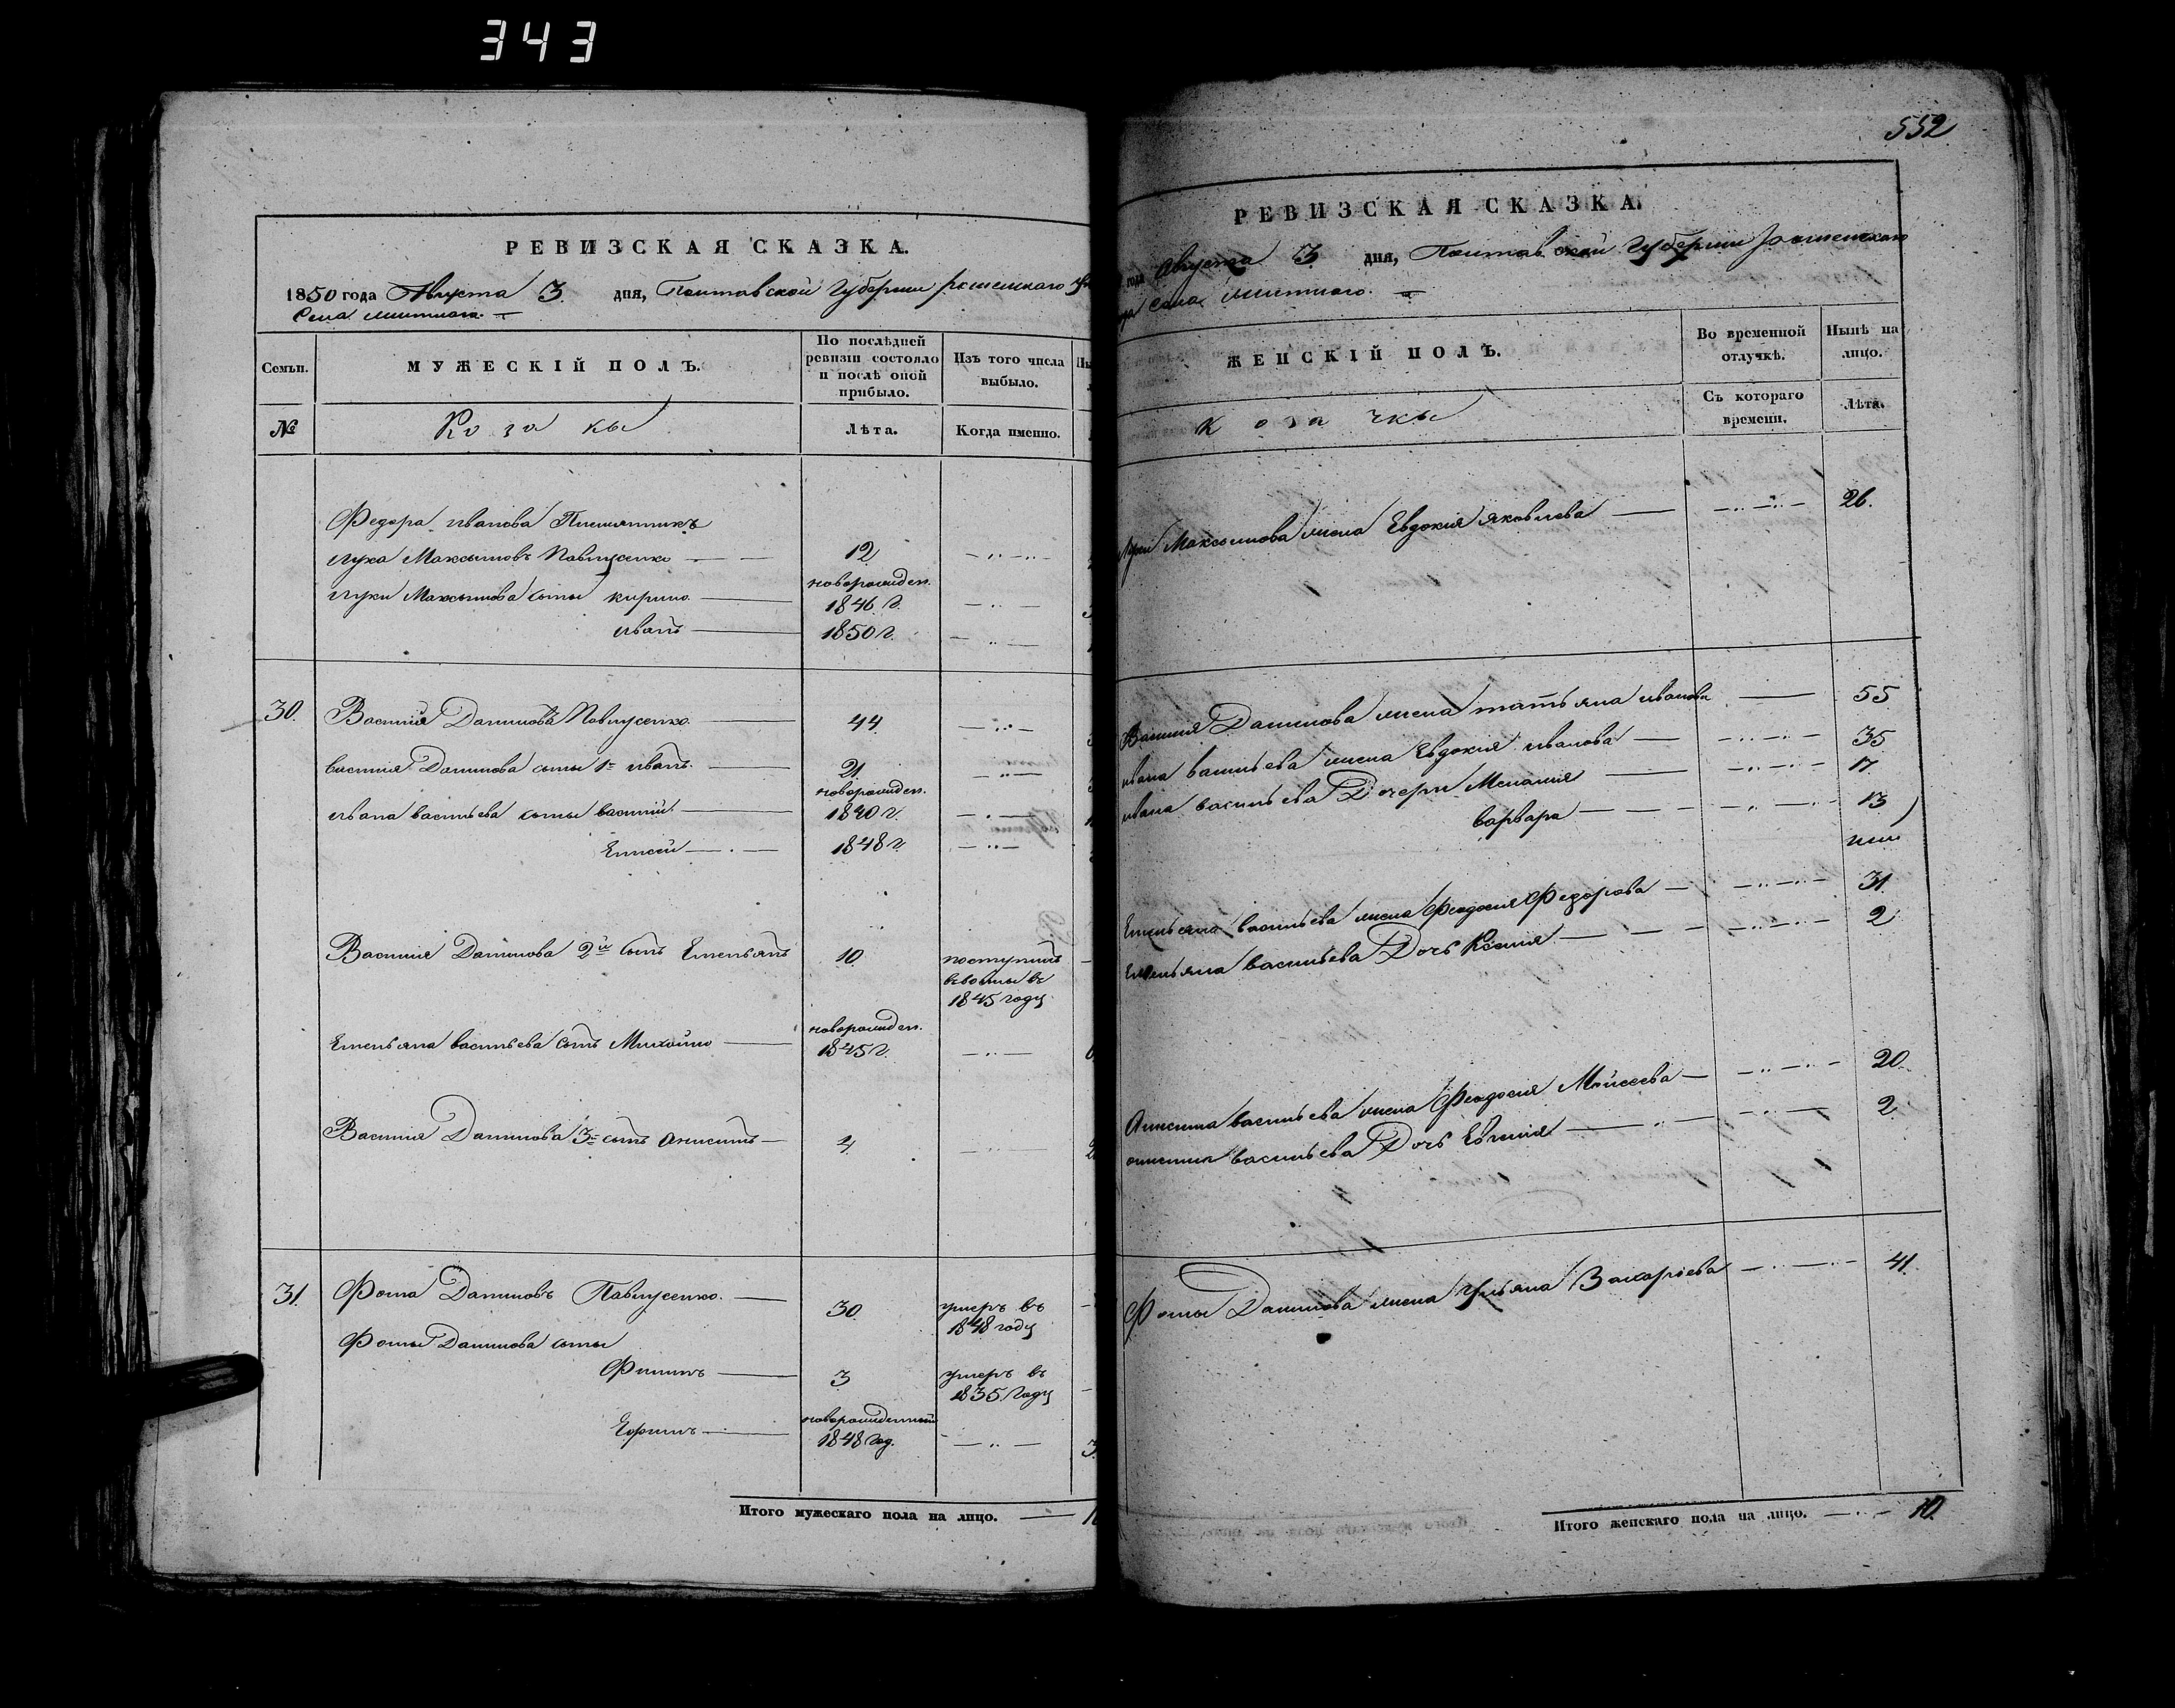 343
РЕВИЗСКАЯ СКАЗКА.
1850 года Августа 3. дня, Полтавской Губерніи
Села
Семьи.
МУЖЕСКІЙ ПОЛЪ.
По послѣдней ревизіи состояло и послѣ оной прибыло.
Изъ того числа выбыло.
№
Козакы
Лѣта.
Когда именно.
Федора Иванова
Лука Максимовъ Павлусенко 12
Луки Максимова сыны Кирило новорожден. 1846 г.
Иванъ 1850 г.
30. Василій Даниловъ Павлусенко 44
Василія Данилова сыны 1й Иванъ 21.
Ивана Васильева сыны Василій новорожден. 1840 г.
Елисей 1848 г.
Василія Данилова 2й сынъ Емельянъ 10 поступилъ въ 1845 году
Емельяна Васильева сынъ Михайло новорожден. 1845 г.
Василія Данилова 3й сынъ Анисимъ 4
31. Фома Даниловъ Павлусенко 30 умеръ въ 1848 году
Фомы Данилова сыны
Филипъ 3 умеръ въ 1835 году
новорожденный 1848 год.
Итого мужескаго пола на лицо.
552
РЕВИЗСКАЯ СКАЗКА.
года Августа 3 дня, Полтавской Губерніи
Села
ЖЕНСКІЙ ПОЛЪ.
Во временной отлучкѣ.
Нынѣ на лицо.
Козачкы
Съ котораго времени.
Лѣта.
Луки Максимова жена Евдокия Яковлева 26.
Василія Данилова жена Татьяна Иванова 55
Ивана Васильева жена Евдокия Иванова 35
Ивана Васильева Дочери Меланія 17
Варвара 13
Емельяна Васильева жена Феодосия Федорова 31
Емельяна Васильева Дочь Ксения 2
Анисима Васильева жена Феодосия Моисеева 20.
Анисима Васильева Дочь Евгения 2
Фомы Данилова жена Ульяна Захарьева 41.
Итого женскаго пола на лицо. 10.